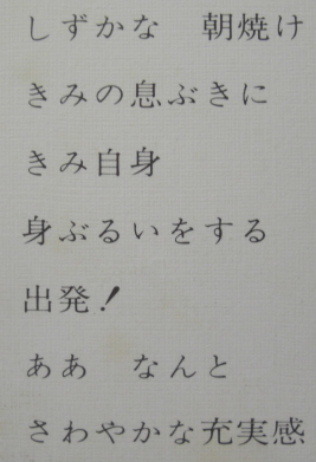 しずかな　朝焼け
きみの息ぶきに
きみ自身
身ぶるいをする
出発！
ああ　なんと
さわやかな充実感